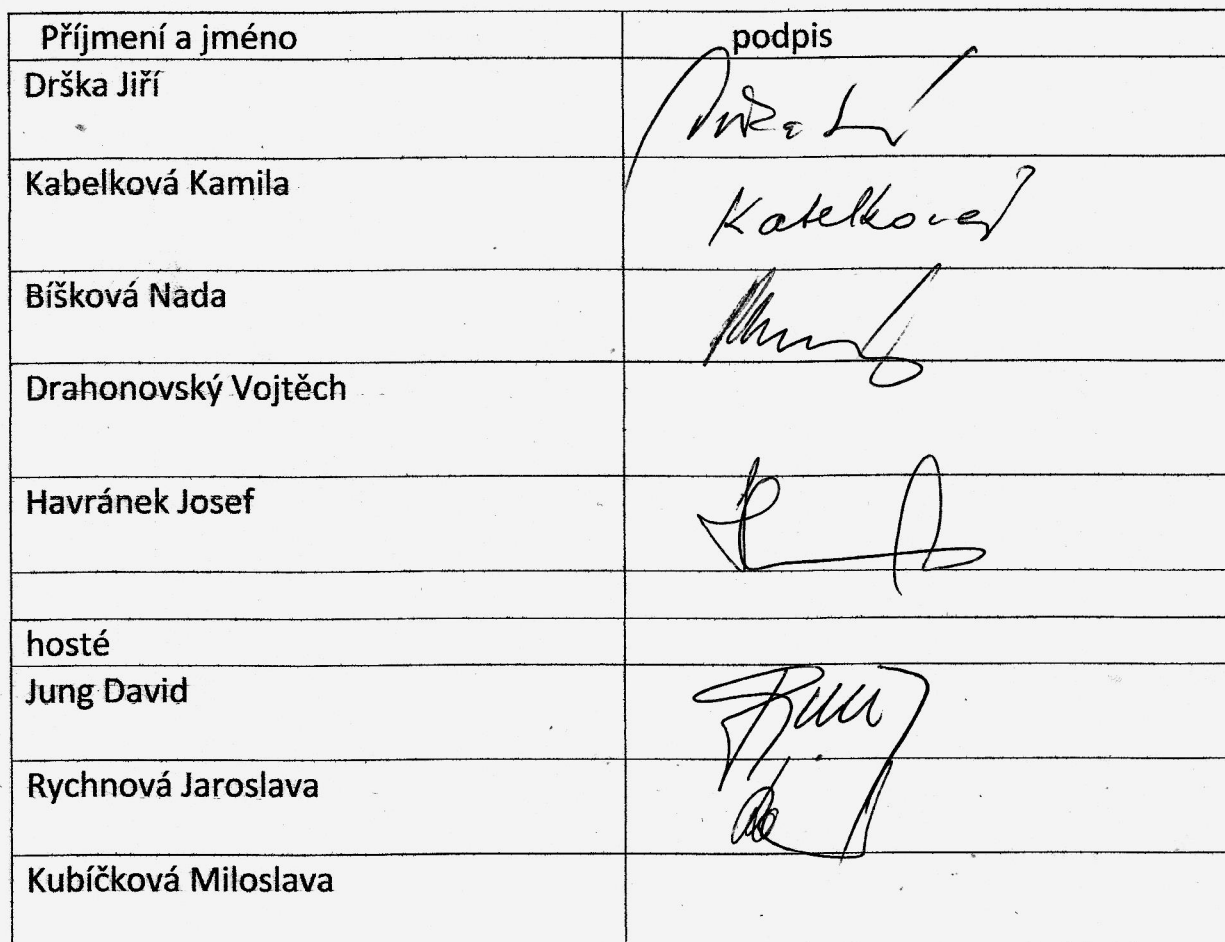 Příjmení a jméno podpis
Drška Jiří
Kabelková Kamila Kabelková
Bíšková Nada
Drahonovský Vojtěch
Havránek Josef
hosté
Jung David
Rychnová Jaroslava
Kubíčková Miloslava